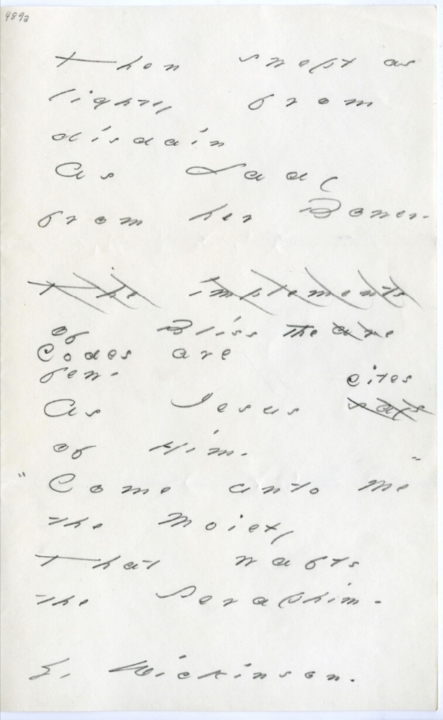 989a
Then swept as
lightly from
disdain
As Lady
from her Bower.
The implements
of Bliss the are
Codes are
few.
cites
As Jesus says
of Him.
"Come unto me"
the Moiety
That wafts
the Seraphim.
E. Dickinson.